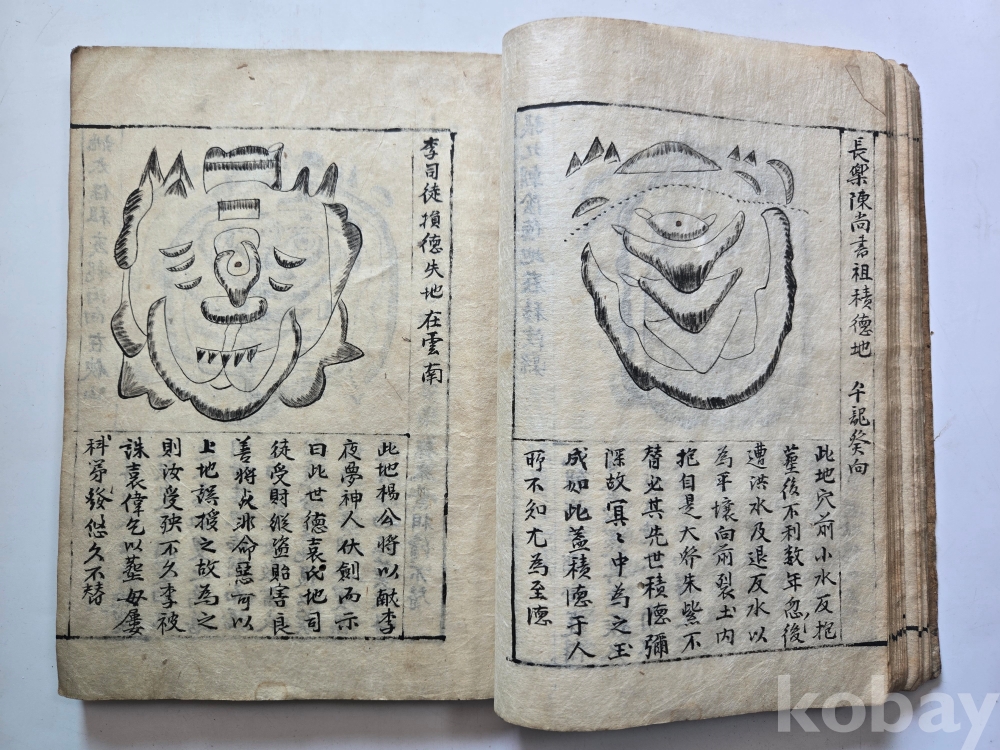 長樂陳尚書祖積德地 午龍癸向
此地穴前小水反抱
塟後不利数年忽後
遭洪水及退反水以
為平壤向前裂土内
抱自是大斧朱紫不
替必其先世積德彌
深故冥〻中為之玉
成如此盖積德于人
所不知尤為至德
李司徒損德失地在雲南
此地楊公將以献李
夜夢神人伏劍而示
曰此世德袁氏地司
徒受財縱盗貽害良
善將死非命惡可以
上地誤授之故為之
則汝受殃不久李被
誅袁偉乞以塟母屢
科苐發悠久不替
kobay